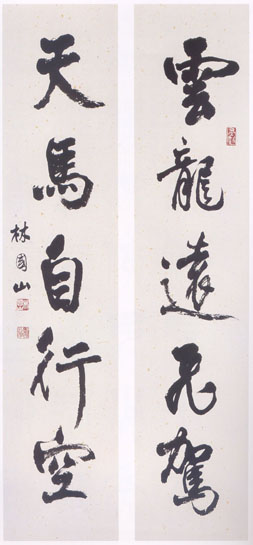 雲龍遠飛駕
天馬自行空
林國山